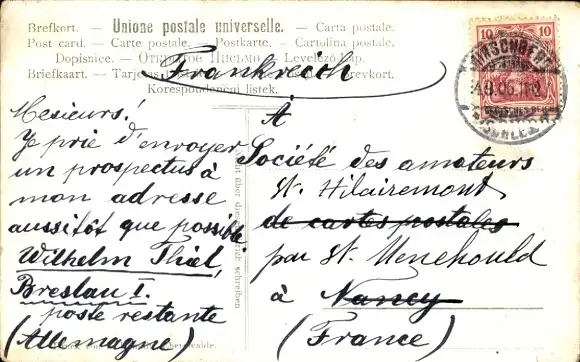 Brefkort. — Unione postale universelle. — Carta postale.
Post card. — Carte postale. — Postkarte. — Cartolina postale.
Dopisnice. — Открытое письмо. — Levelező-lap.
Briefkaart. — Tarjeta
Frankreich
Brevkort.
Korespondenční listek.
10 10
DEUTSCHES REICH
Mesieurs!
Je prie d'envoyer
un prospectus à
mon adresse
aussitôt que possible
Wilhelm Thiel,
Breslau I.
poste restante
(Allemagne)
À
Société des amateurs
St. Hilairemont
de cartes postales
par St. Menehould
à Nancy
(France)